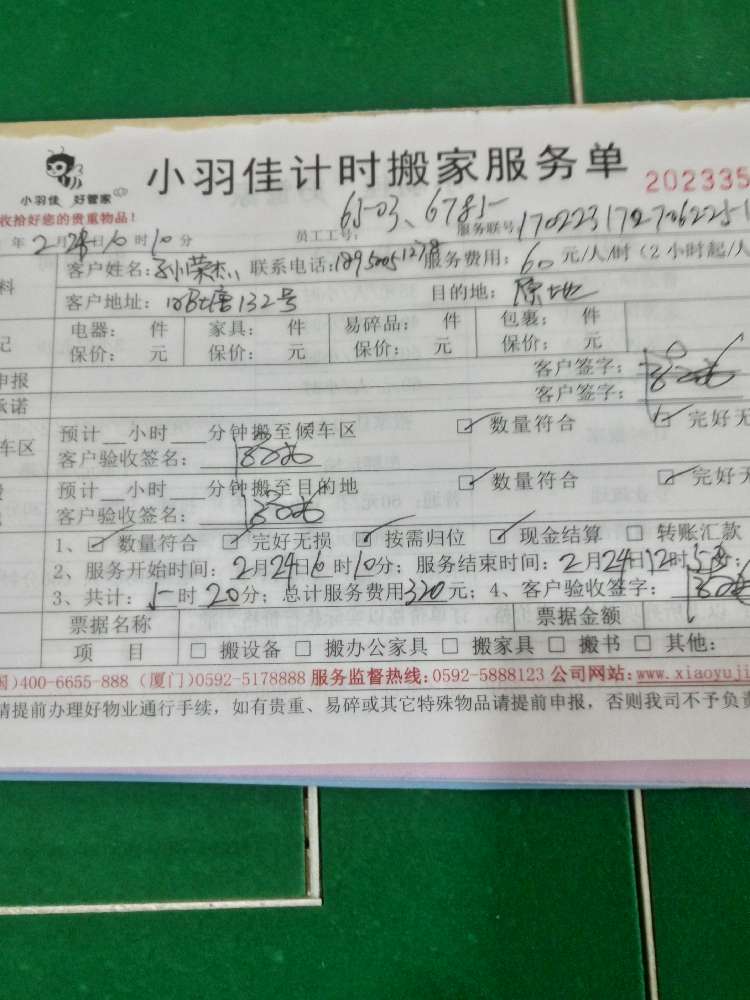 小羽佳 好管家
小羽佳计时搬家服务单
202335
收拾好您的贵重物品！
员工工号： 6503、6785
服务联号
年2月24日10时10分
料
客户姓名： 联系电话： 服务费用：60元/人/时（2小时起/人
客户地址： 132号 目的地：原地
记
电器： 件 家具： 件 易碎品： 件 包裹： 件
保价： 元 保价： 元 保价： 元 保价： 元
申报 客户签字：
承诺 客户签字：
车区
预计__小时___分钟搬至候车区 ☑ 数量符合 ☑ 完好无
客户验收签名：
预计__小时___分钟搬至目的地 ☑ 数量符合 ☑ 完好无
客户验收签名：
1、☑ 数量符合 ☑ 完好无损 ☑ 按需归位 ☑ 现金结算 □ 转账汇款
2、服务开始时间：2月24日10时10分；服务结束时间：2月24日12时
3、共计：5时20分；总计服务费用320元；4、客户验收签字：
票据名称 票据金额
项 目 □ 搬设备 □ 搬办公家具 □ 搬家具 □ 搬书 □ 其他：
)400-6655-888（厦门）0592-5178888 服务监督热线:0592-5888123 公司网站:www.xiaoyuji
请提前办理好物业通行手续，如有贵重、易碎或其它特殊物品请提前申报，否则我司不予负责